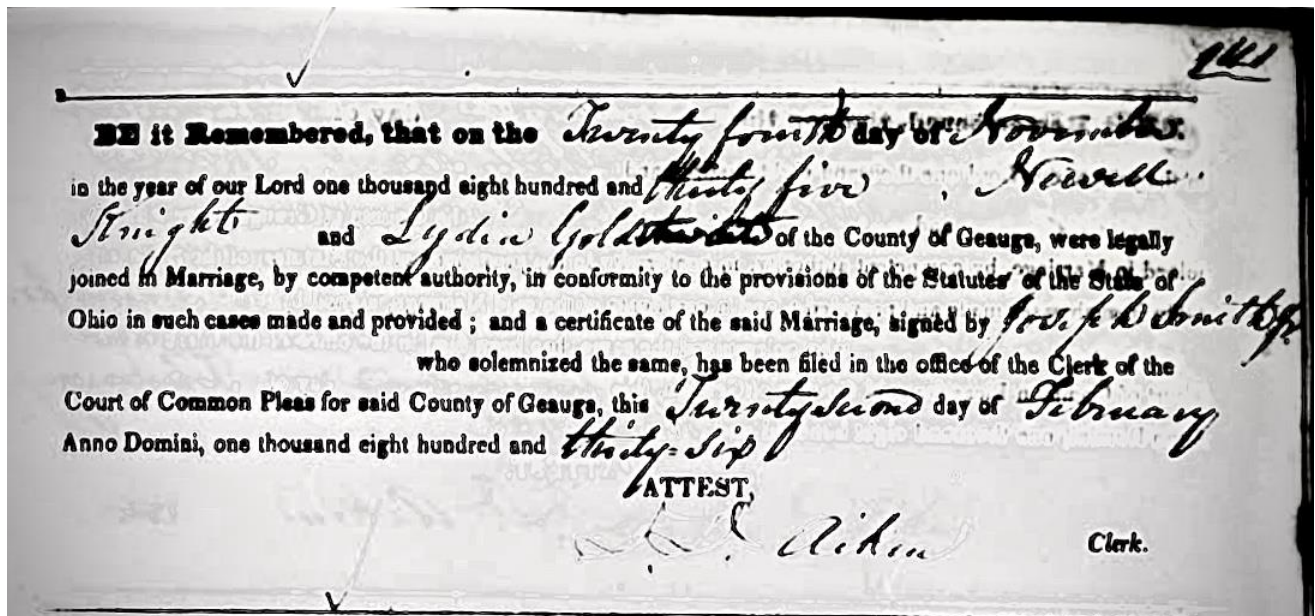 141
BE it Remembered, that on the Twenty fourth day of November.
in the year of our Lord one thousand eight hundred and thirty five , Newell
Knight and Lydia Goldthwaite of the County of Geauga, were legally
joined in Marriage, by competent authority, in conformity to the provisions of the Statutes of the State of
Ohio in such cases made and provided ; and a certificate of the said Marriage, signed by Joseph Smith Jr.
who solemnized the same, has been filed in the office of the Clerk of the
Court of Common Pleas for said County of Geauga, this Twenty second day of February
Anno Domini, one thousand eight hundred and thirty-six
ATTEST,
D. D. Aiken Clerk.